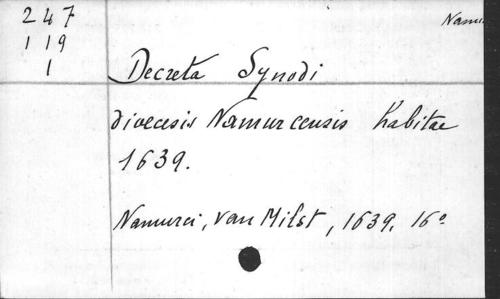 247
119
1
Decreta Synodi
dioecesis Namurcensis habitae
1639.
Namurci, van Milst, 1639. 16º